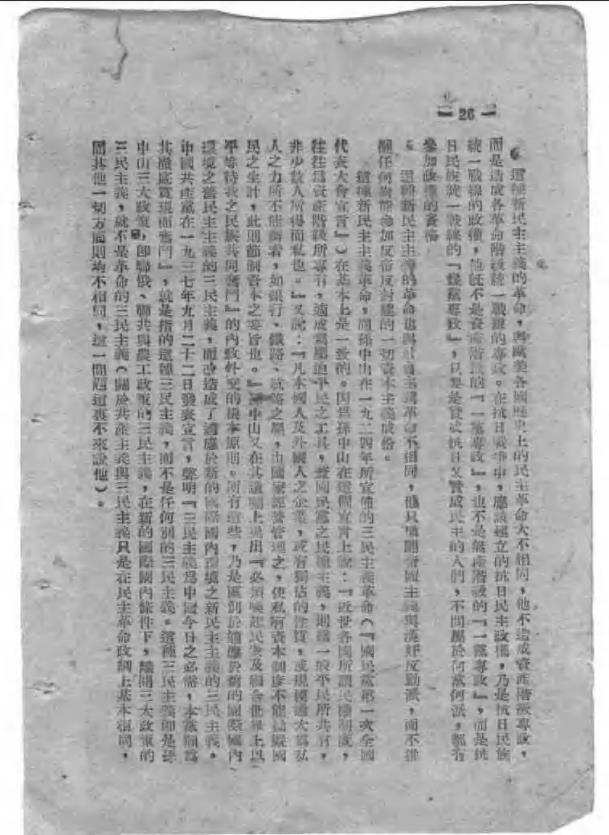 — 26 —
這種新民主主義的革命，與歐美各國歷史上的民主革命大不相同，他不造成資產階級專政，
而是造成各革命階級統一戰線的專政。在抗日戰爭中，應該建立的抗日民主政權，乃是抗日民族
統一戰線的政權，他旣不是資產階級的『一黨專政』，也不是無產階級的『一黨專政』，而是抗
日民族統一戰線的『幾黨專政』，只要是贊成抗日又贊成民主的人們，不問屬於何黨何派，都有
參加政權的資格。
這種新民主主義的革命也與社會主義革命不相同，他只推翻帝國主義與漢奸反動派，而不推
翻任何尙能參加反帝反封建的一切資本主義成份。
這種新民主主義革命，同孫中山在一九二四年所宣佈的三民主義革命（『國民黨第一次全國
代表大會宣言』）在基本上是一致的。因爲孫中山在這個宣言上說：『近世各國所謂民權制度，
往往爲資產階級所專有，適成爲壓迫平民之工具，若國民黨之民權主義，則爲一般平民所共有，
非少數人所得而私也。』又說：『凡本國人及外國人之企業，或有獨佔的性質，或規模過大爲私
人之力所不能辦者，如銀行、鐵路、航路之屬，由國家經營管理之，使私有資本制度不能操縱國
民之生計，此則節制資本之要旨也。』孫中山又在其遺囑上提出『必須喚起民衆及聯合世界上以
平等待我之民族共同奮鬥』的內政外交的根本原則。所有這些，乃是區別於適應於舊的國際國內
環境之舊民主主義的三民主義，而改造成了適應於新的國際國內環境之新民主主義的三民主義。
中國共產黨在一九三七年九月二十二日發表宣言，聲明『三民主義爲中國今日之必需，本黨願爲
其徹底實現而奮鬥』，就是指的這種三民主義，而不是任何別的三民主義。這種三民主義卽是孫
中山三大政策，卽聯俄、聯共與農工政策的三民主義，在新的國際國內條件下，離開三大政策的
三民主義，就不是革命的三民主義（關於共產主義與三民主義只是在民主革命政綱上基本相同，
而其他一切方面則均不相同，這一問題這裏不來說他）。